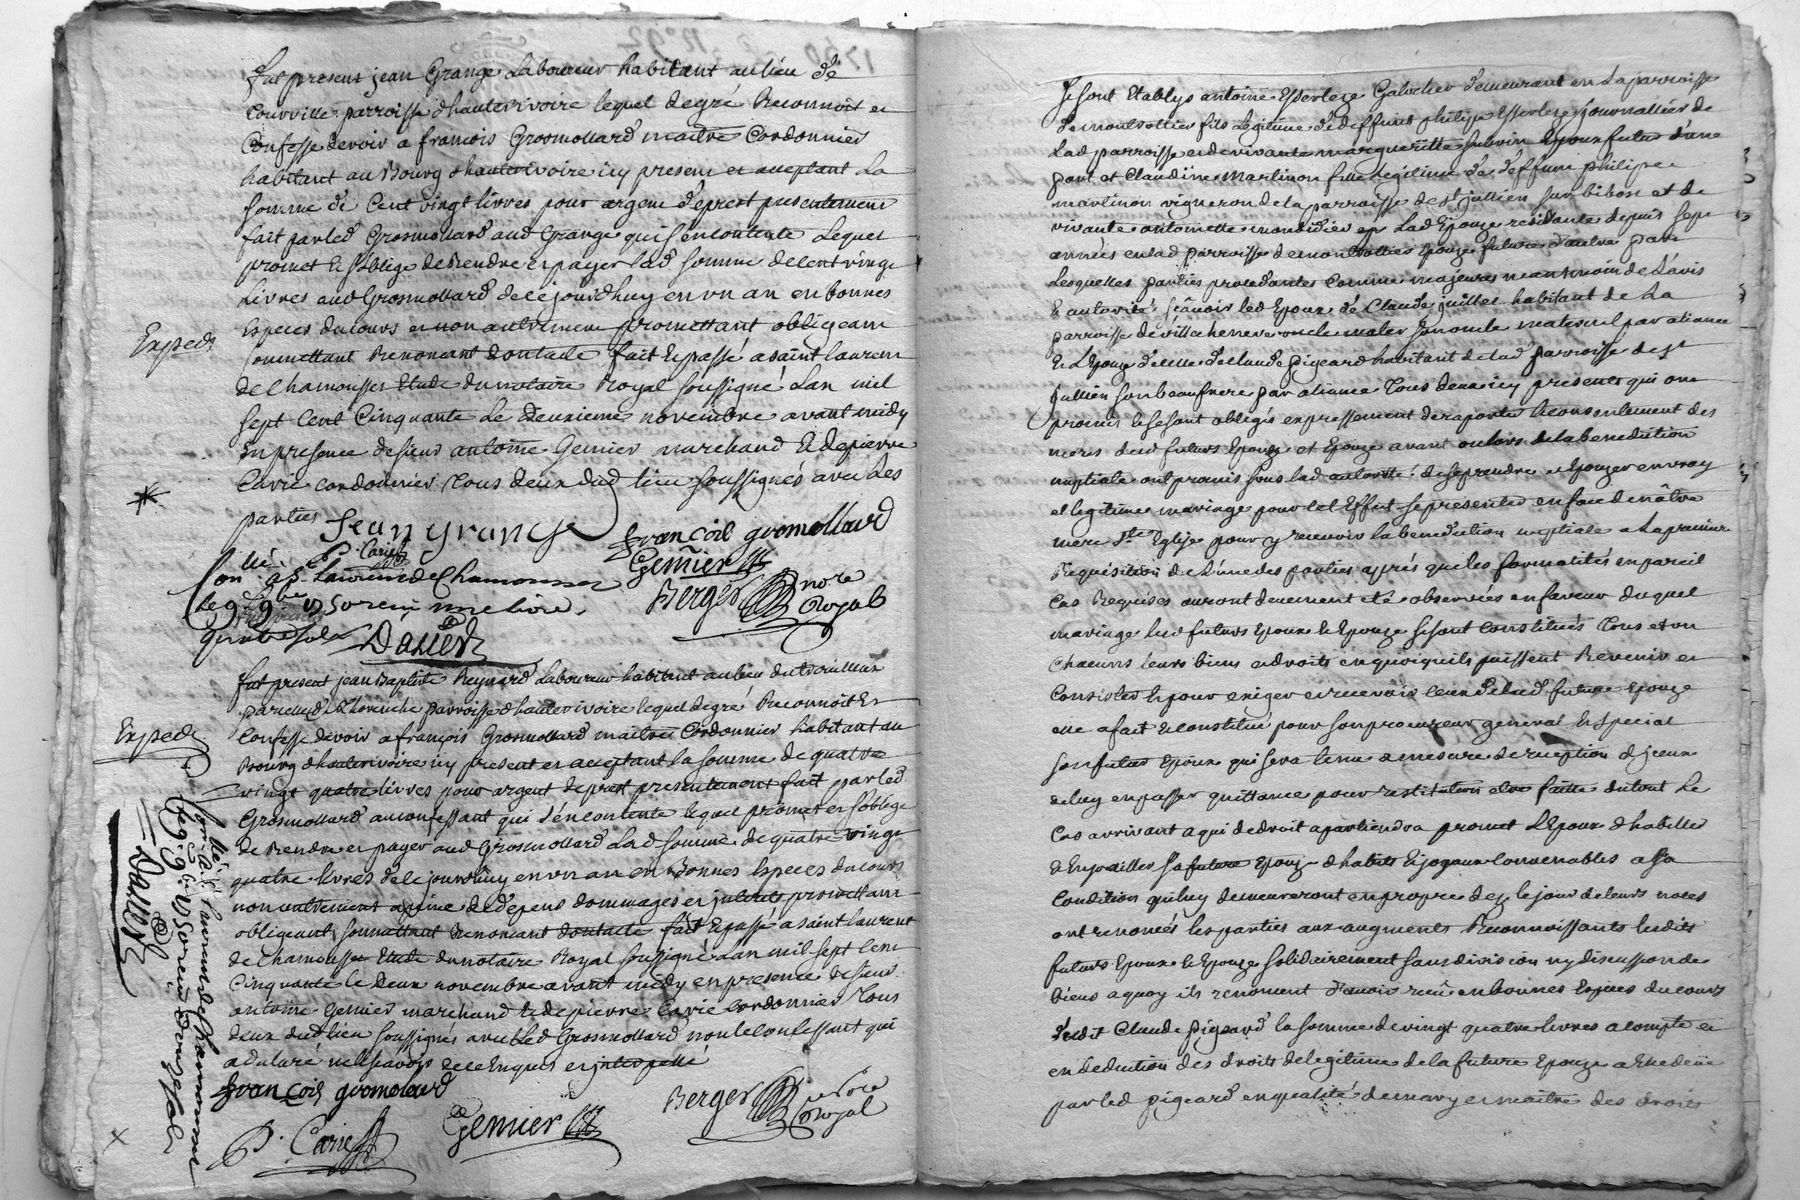 fut present jean Grange Laboureur habitant au lieu de
Courville parroisse d'hauterivoire lequel de gré Reconnoit et
Confesse devoir a francois Grosmollard maitre Cordonnier
habitant au Bourg d'hauterivoire icy present et acceptant La
somme de Cent vingt livres pour argent de prest presentement
fait par led Grosmollard aud Grange qui s'en contente Lequel
promet et s'oblige de Rendre et payer lad somme de cent vingt
Livres aud Grosmollard de ce jourd'huy en un an en bonnes
Especes du cours et non autrement promettant obligeant
soumettant Renoncant dont acte fait et passé a saint laurent
de Chamousset Etude du notaire Royal soussigné L'an mil
sept Cent Cinquante Le Deuxieme novembre avant midy
En presence de sieur antoine Gemier marchand et de pierre
Carie cordonnier Tous deux dud lieu soussignés avec Les
parties
Jean grange
françois gromollard
P. Carie
Gemier
Berger nore Royal
Con.llé a St Laurent de Chamousset
le 9 9bre 1750 reçu une livre
quatre sols
Daniere
Exped.
fut present jean Baptiste Reynard Laboureur habitant au lieu
parroisse d'hauterivoire lequel de gré Reconnoit Et
Confesse devoir a françois Grosmollard maitre Cordonnier habitant au
Bourg d'hauterivoire icy present et acceptant la somme de quatre
vingt quatre livres pour argent de prest presentement fait par led
Grosmollard au confessant qui s'en contente lequel promet et s'oblige
de Rendre et payer aud Grosmollard Lad somme de quatre vingt
quatre livres de ce jourd'huy en un an en Bonnes Especes du cours
non autrement a peine de depens dommages et jnterets promettant
obligeant soumettant Renoncant dont acte fait et passé a saint laurent
de Chamousset Etude du notaire Royal soussigné L'an mil sept Cent
Cinquante le Deux novembre avant midy en presence de sieur
antoine Gemier marchand et de pierre Carie Cordonnier Tous
deux dud lieu soussignés avec Led Grosmollard non le confessant qui
a declaré ne le scavoir de ce Enquis et jnterpellé
françois gromolard
P. Carie
Gemier
Berger nore Royal
Exped.
Con.llé a St Laurent de Chamousset
le 9 9bre 1750 reçu douze sols
Daniere
Se sont Etablys antoine demeurant en La parroisse
de montrottier fils legitime de deffunt philipe journallier de
Lad parroisse et de vivante margueritte Epoux futur d'une
part et Claudine Martinon fille legitime de deffunt philipe
martinon vigneron de la parroisse de st jullien sur bibost et de
vivante antoinette Lad Epouze residante depuis sept
années en lad parroisse de montrottier Epouze future d'autre part
Lesquelles parties procedantes comme majeures neantmoin de L'avis
et autorité scavoir led Epoux de Claude juillet habitant de La
parroisse de villecheneve son oncle maternel par aliance
Et L'Epouze d'elle de Claude pigeard habitant de lad parroisse de st
jullien son beaufrere par aliance Tous deux icy presents qui ont
promis et se sont obligés expressement de raporter le consentement des
meres desd futurs Epoux et Epouze avant ou lors de la benediction
nuptiale ont promis sous lad autorité de se prendre et Epouzer en vray
et legitime mariage pour cet Effet se presenter en face de nâtre
mere Ste Eglise pour y recevoir la benediction nuptiale a La premiere
Requisition de L'une des parties aprés que les formalités en pareil
Cas Requises auront deuement eté observées en faveur duquel
mariage lesd futurs Epoux et Epouze se sont constitués Tous et un
chacuns leurs biens et droits en quoi qu'ils puissent Revenir et
Consister et pour exiger et recevoir ceux de lad future Epouze
elle a fait et constitué pour son procureur general et special
son futur Epoux qui sera tenu a mesure de reception d'jceux
de luy en passer quittance pour restitution etre faitte du tout Le
Cas arrivant a qui de droit apartiendra promet L'Epoux d'habiller
et Enjoailler sa future Epouze d'habits et joyaux convenables a sa
Condition qui luy demeureront en propre dez le jour de leurs noces
ont renoncés les parties aux augments Reconnoissants lesdits
futurs Epoux et Epouze solidairement sans division ny discussion de
biens a quoy ils renoncent d'avoir recû en bonnes Especes du cours
dudit Claude pigeard la somme de vingt quatre livres a compte et
en deduction des droits de legitime de la future Epouze a Elle deüe
par led pigeard en qualité de mary et maitre des droits